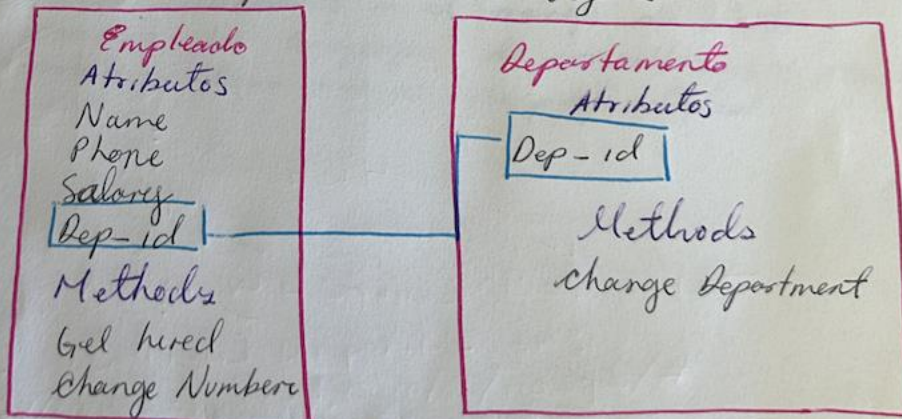 Empleado
Atributos
Name
Phone
Salary
Dep-id
Methods
Get hired
Change Number
Departamento
Atributos
Dep-id
Methods
change Department